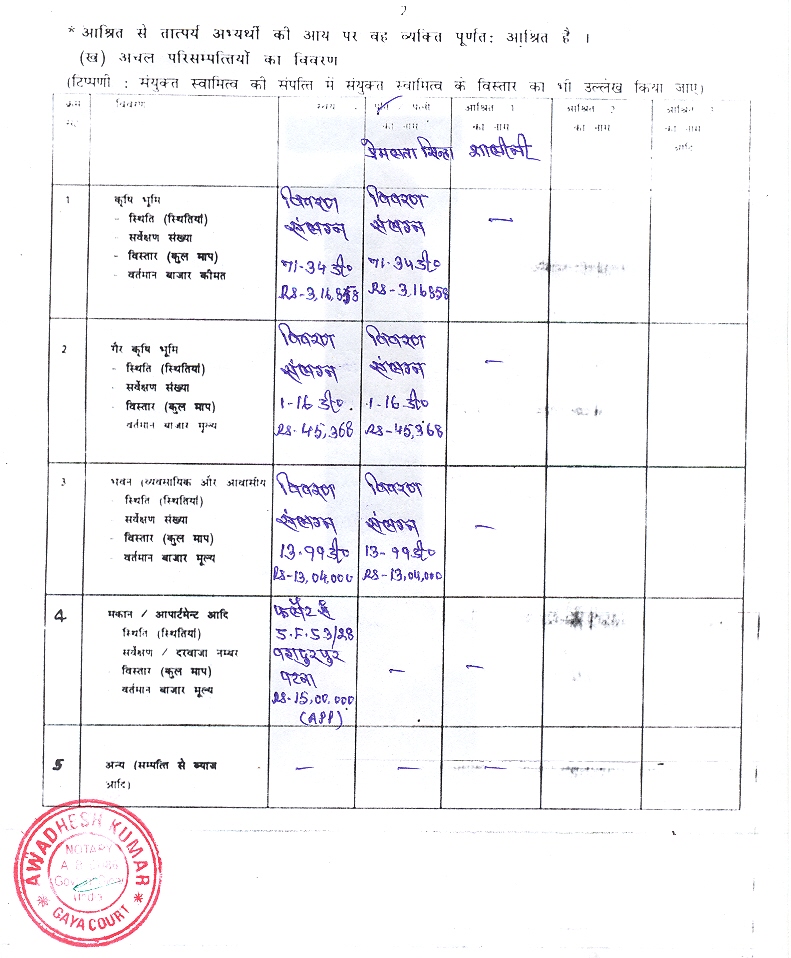 2
* आश्रित से तात्पर्य अभ्यर्थी की आय पर वह व्यक्ति पूर्णत: आश्रित है ।
(ख) अचल परिसम्पत्तियों का विवरण
(टिप्पणी : संयुक्त स्वामित्व की संपत्ति में संयुक्त स्वामित्व के विस्तार का भी उल्लेख किया जाए)
क्रम विवरण स्वयं पत्नी आश्रित 1 आश्रित 2 आश्रित 3
का नाम का नाम का नाम का नाम
आदि
प्रेमलता सिन्हा शालीनी
1 कृषि भूमि विवरण विवरण
- स्थिति (स्थितियां) संलग्न संलग्न —
- सर्वेक्षण संख्या
- विस्तार (कुल माप) 71-34 डी० 71-34 डी०
- वर्तमान बाजार कीमत RS-3,16,858 RS-3,16858
2 गैर कृषि भूमि विवरण विवरण
- स्थिति (स्थितियां) संलग्न संलग्न —
- सर्वेक्षण संख्या
- विस्तार (कुल माप) 1-16 डी० 1-16 डी०
वर्तमान बाजार मूल्य RS-45,368 RS-45,368
3 भवन (व्यवसायिक और आवासीय विवरण विवरण
स्थिति (स्थितियां)
सर्वेक्षण संख्या संलग्न संलग्न —
विस्तार (कुल माप) 13-99 डी० 13-99 डी०
वर्तमान बाजार मूल्य RS-13,04,000 RS-13,04,000
4 मकान / आपार्टमेन्ट आदि
स्थिति (स्थितियां) S.F. 53/28
सर्वेक्षण / दरवाजा नम्बर
विस्तार (कुल माप) पटना — —
वर्तमान बाजार मूल्य RS-15,00,000
(APP)
5 अन्य (सम्पत्ति से ब्याज — — — —
आदि)
AWADHESH KUMAR
NOTARY
India
GAYA COURT